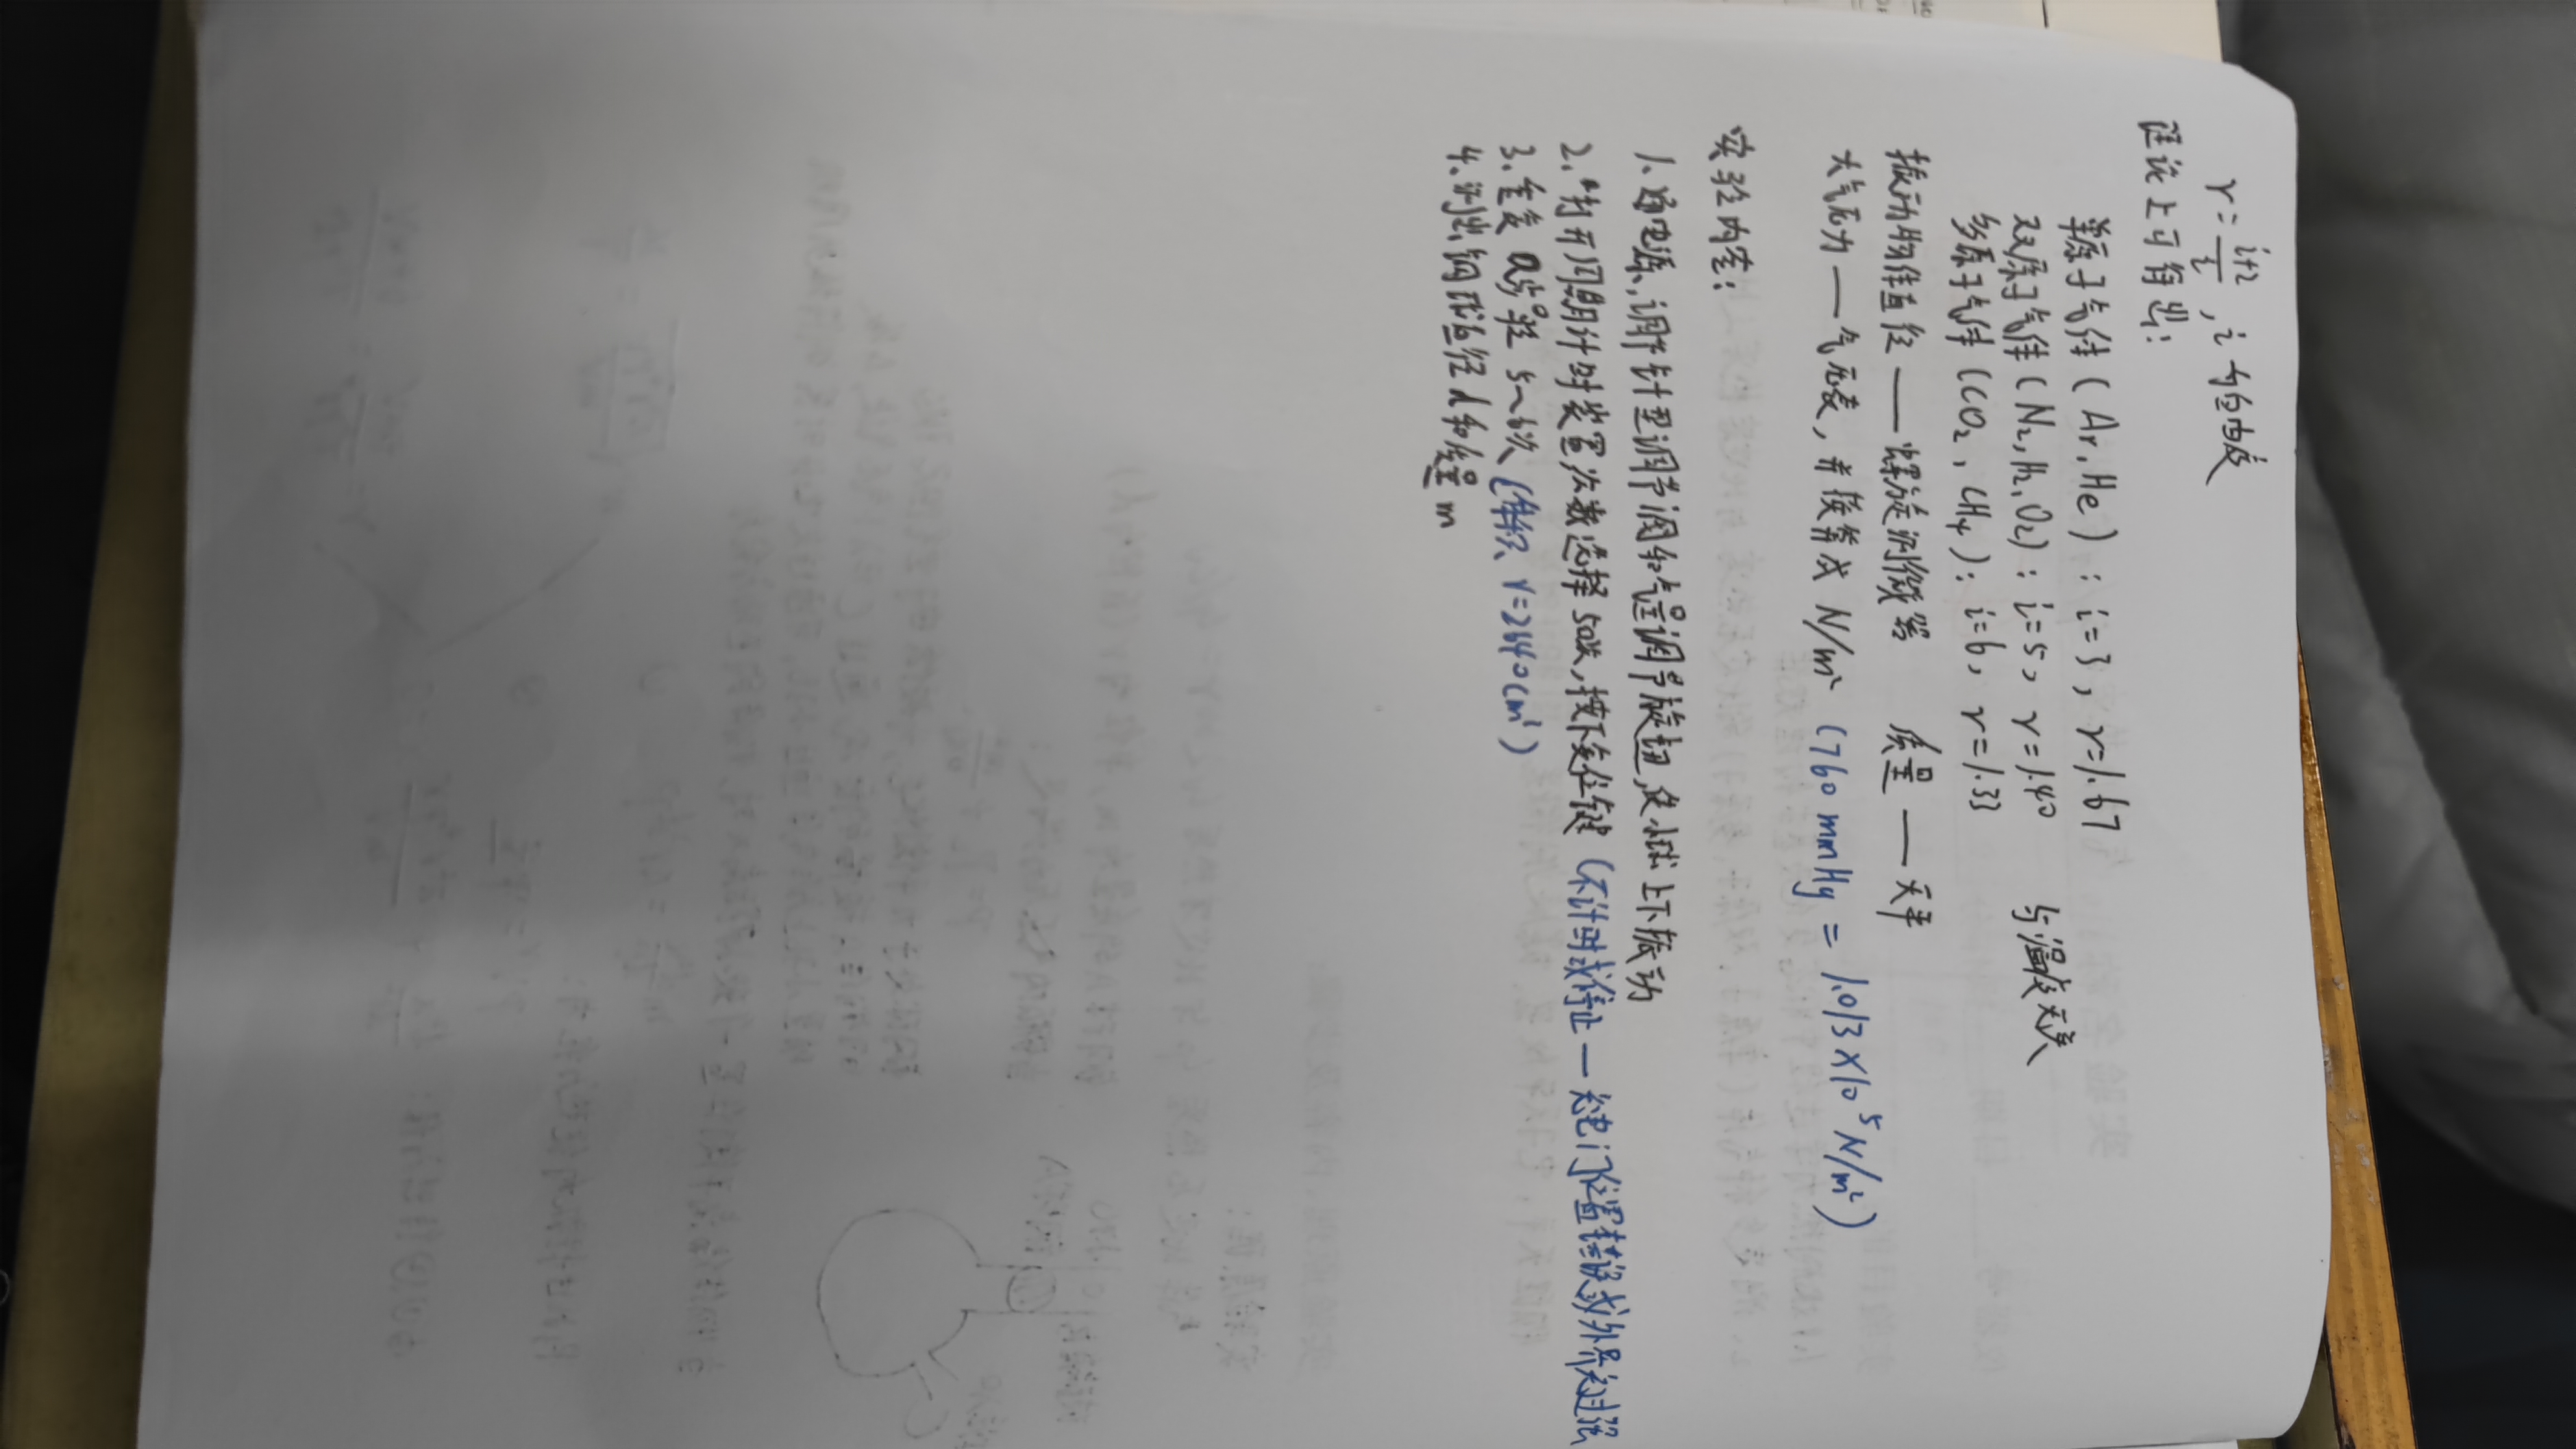 γ = (i+2)/i , i为自由度
理论上可得出:
单原子气体 ( Ar, He ) : i=3, γ=1.67
双原子气体 ( N₂, H₂, O₂ ) : i=5, γ=1.40 与温度无关
多原子气体 ( CO₂, CH₄ ) : i=6, γ=1.33
振动物体直径 —— 螺旋测微器 质量 —— 天平
大气压力 —— 气压表, 并换算成 N/m² (760 mmHg = 1.013×10⁵ N/m²)
实验内容:
1. 电源, 调节针型调节阀和气量调节旋钮, 使小球上下振动
2. 打开周期计时装置, 次数选择 50次, 按下复位键 (不计时或停止 — 光电门位置错误或外界光过强
3. 重复 步骤 5~6次 (体积 V=2640cm³)
4. 测出钢球直径 d 和质量 m